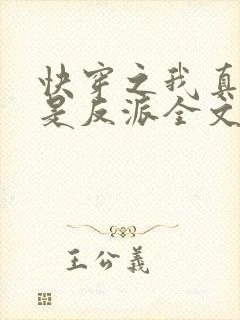 快穿之我真
是反派全文
王公義